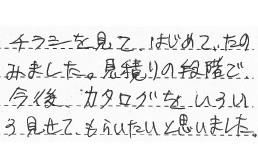 チラシを見て、はじめて、たの
みました。見積りの段階で、
今後、カタログをいろい
ろ見せてもらいたいと思いました。